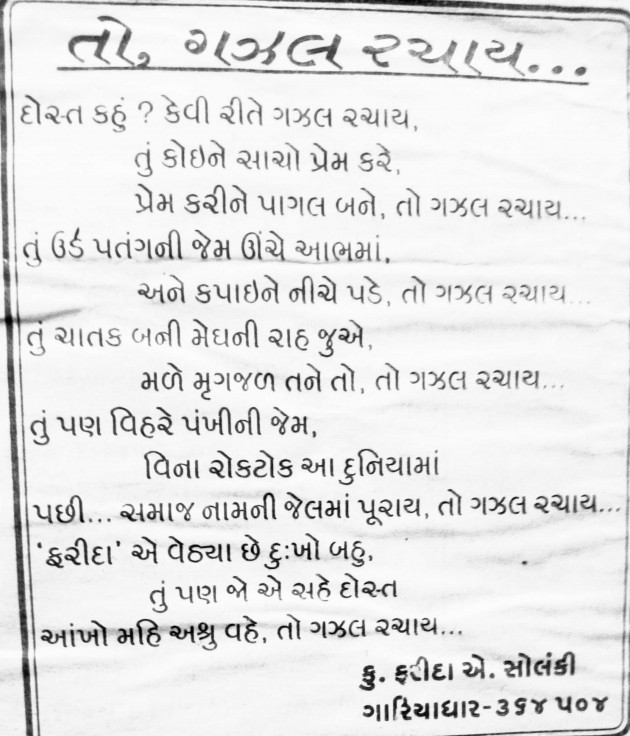 તો, ગઝલ રચાય...
દોસ્ત કહું ? કેવી રીતે ગઝલ રચાય,
તું કોઇને સાચો પ્રેમ કરે,
પ્રેમ કરીને પાગલ બને, તો ગઝલ રચાય...
તું ઉડે પતંગની જેમ ઊંચે આભમાં,
અને કપાઇને નીચે પડે, તો ગઝલ રચાય...
તું ચાતક બની મેઘની રાહ જુએ,
મળે મૃગજળ તને તો, તો ગઝલ રચાય...
તું પણ વિહરે પંખીની જેમ,
વિના રોકટોક આ દુનિયામાં
પછી... સમાજ નામની જેલમાં પૂરાય, તો ગઝલ રચાય...
'ફરીદા' એ વેઠ્યા છે દુઃખો બહુ,
તું પણ જો એ સહે દોસ્ત
આંખો મહિ અશ્રુ વહે, તો ગઝલ રચાય...
કુ. ફરીદા એ. સોલંકી
ગારિયાધાર-૩૬૪ ૫૦૪